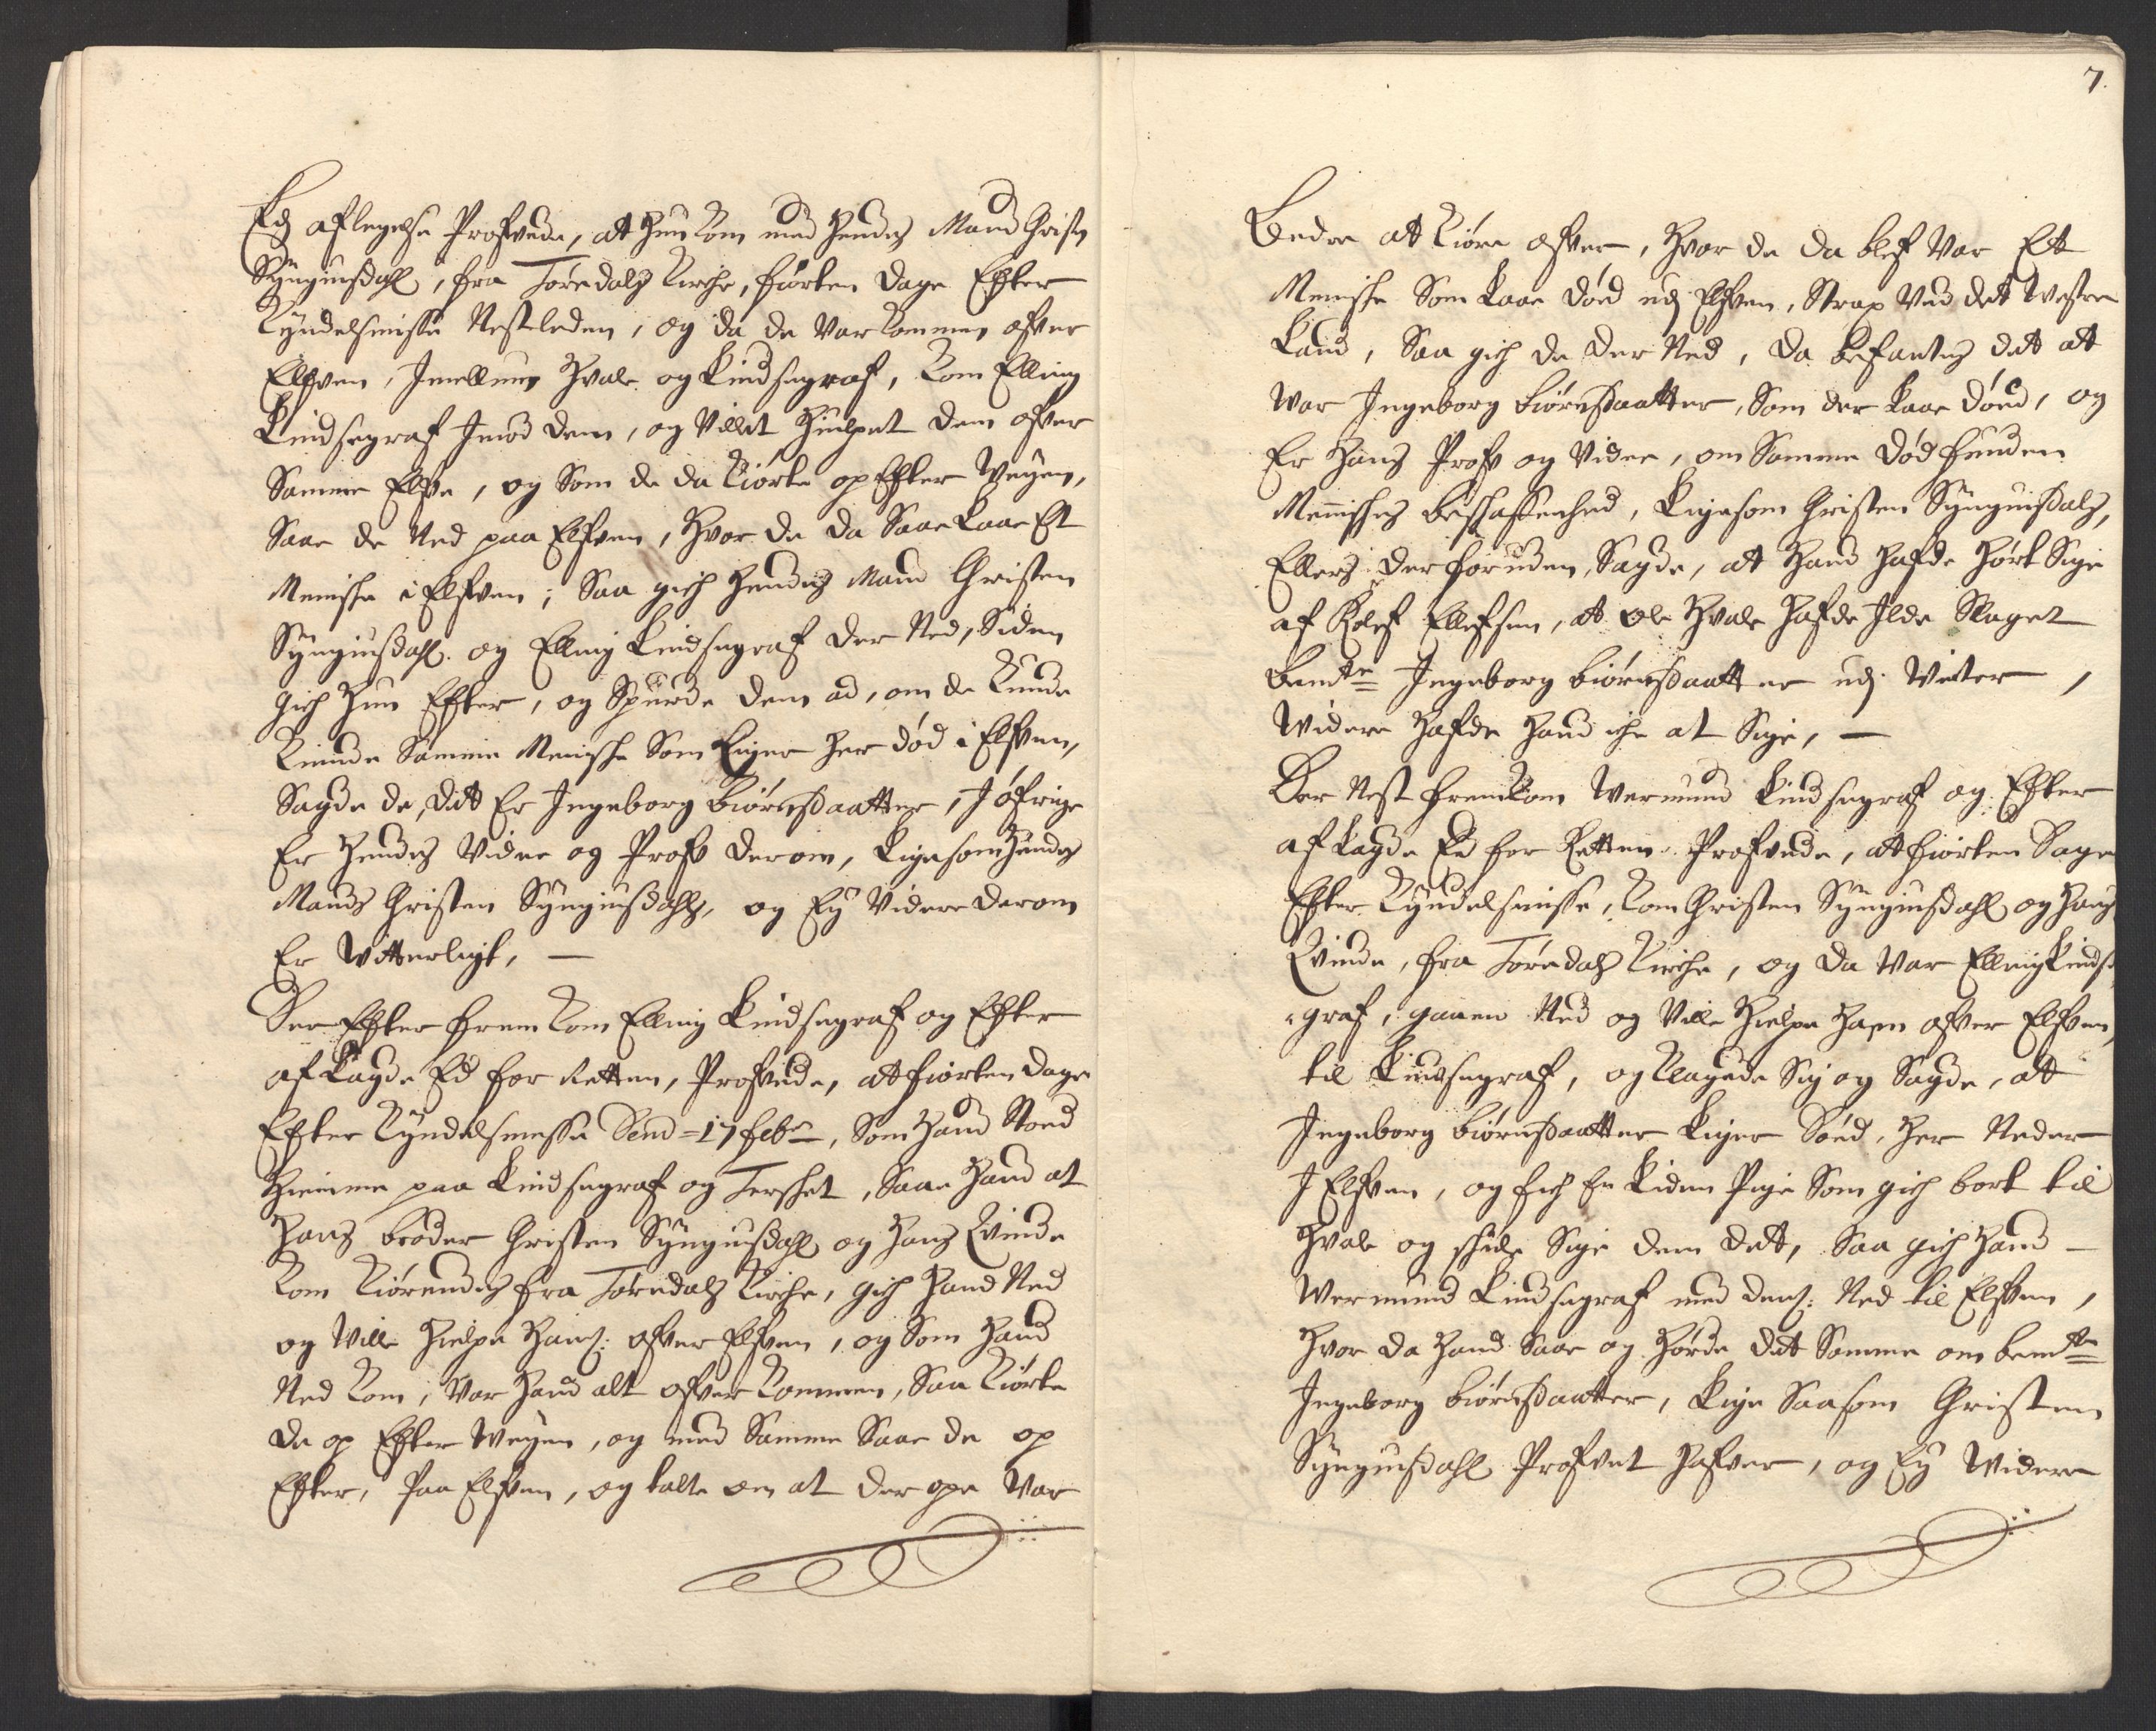 Eds aflegelse Profvede, at hun kom med hendis Mand Christen
Sÿnginßdahl, fra Tørredals Kirche, fiorten dage Efter
Kyndelsmisse Nestleden, og da de Var kommen ofver
Elfven, Imellem Hvale og Lindsegraf, kom Elling
Lindsegraf Imod dem, og Villet hiulpet dem ofver
Samme Elfve, og Som de da kiørte op Efter Veÿen,
Saae de Ned paa Elfven, hvor de da Saae laae Et
Menische i Elfven; Saa gich hendis Mand Christen
Sÿnginßdahl og Elling Lindsegraf der Ned, Siden
gich hun Efter, og Spurde dem ad, om de kunde
kiende Samme Menische Som Liger her død i Elfven,
Sagde de, det Er Ingeborg Biørnßdaatter, I øfrige
Er hendis Vidne og Prof derom, Ligesom hendes
Mands Christen Sÿnginßdahls, og Eÿ Videre derom
Er Vitterligt, —
Der Efter frem kom Elling Lindsegraf og Efter
aflagde Ed for Retten, Profvede, at fiorten dage
Efter Kyndelsmesse Send = 17 febr, Som hand Stoed
hiemme paa Lindsegraf og Terschet, Saae hand at
hans broder Christen Sÿnginßdahl og hans Qvinde
kom kiørendis fra Tørredals Kirche, gich hand Ned
og Ville hielpe ham: ofver Elfven, og Som hand
Ned kom, Var hand alt ofverkommen, Saa kiørte
de op Efter Veÿen, og med Samme Saae de op
Efter, paa Elfven, og talte om at der ope Var
7.
Bedre at kiøre ofver, hvor de da blef Var Et
Menische Som laae død udj Elfven, Strax Ved det Vestre
Land, Saa gich de der Ned, da befantes det at
Var Ingeborg Biørnßdaatter, Som der laae død, og
Er hans Prof og Vidne, om Samme død funden
Mennisches beschaffenhed, Ligesom Christen Sÿnginßdals,
Ellers der foruden, Sagde, at hand hafde hørt Sige
af Rolef Ellefsen, at Ole Hvale hafde Ilde Slaget
bemte Ingeborg Biørnßdaatter udj Vinter,
Videre hafde hand iche at Sige, —
Der Nest fremkom Wermund Lindsegraf og Efter
aflagde Ed for Retten Profvede, at fiorten dage
Efter Kyndelsmisse, kom Christen Sÿnginßdahl og hans
Qvinde, fra Tørredals Kirche, og da Var Elling Lindse
-graf, gaaen Ned og Ville hielpe ham ofver Elfven,
til Lindsegraf, og klagede Sig og Sagde, at
Ingeborg Biørnßdaatter Liger død, her Neder
I Elfven, og fich En Liden Pige Som gich bort til
Hvale og skulde Sige dem det, Saa gich hand —
Wermund Lindsegraf med dem: Ned til Elfven,
hvor da hand Saae og hørde det Samme om bemte
Ingeborg Biørnßdaatter, Lige Saasom Christen
Sÿnginßdahl Profvet hafver, og Eÿ Videre